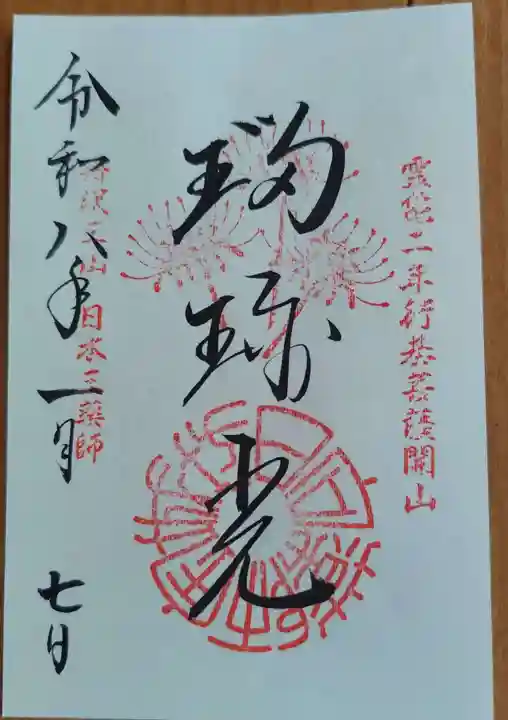 靈龜二年行基菩薩開山
瑠璃光
日本三薬師
令和八年一月七日